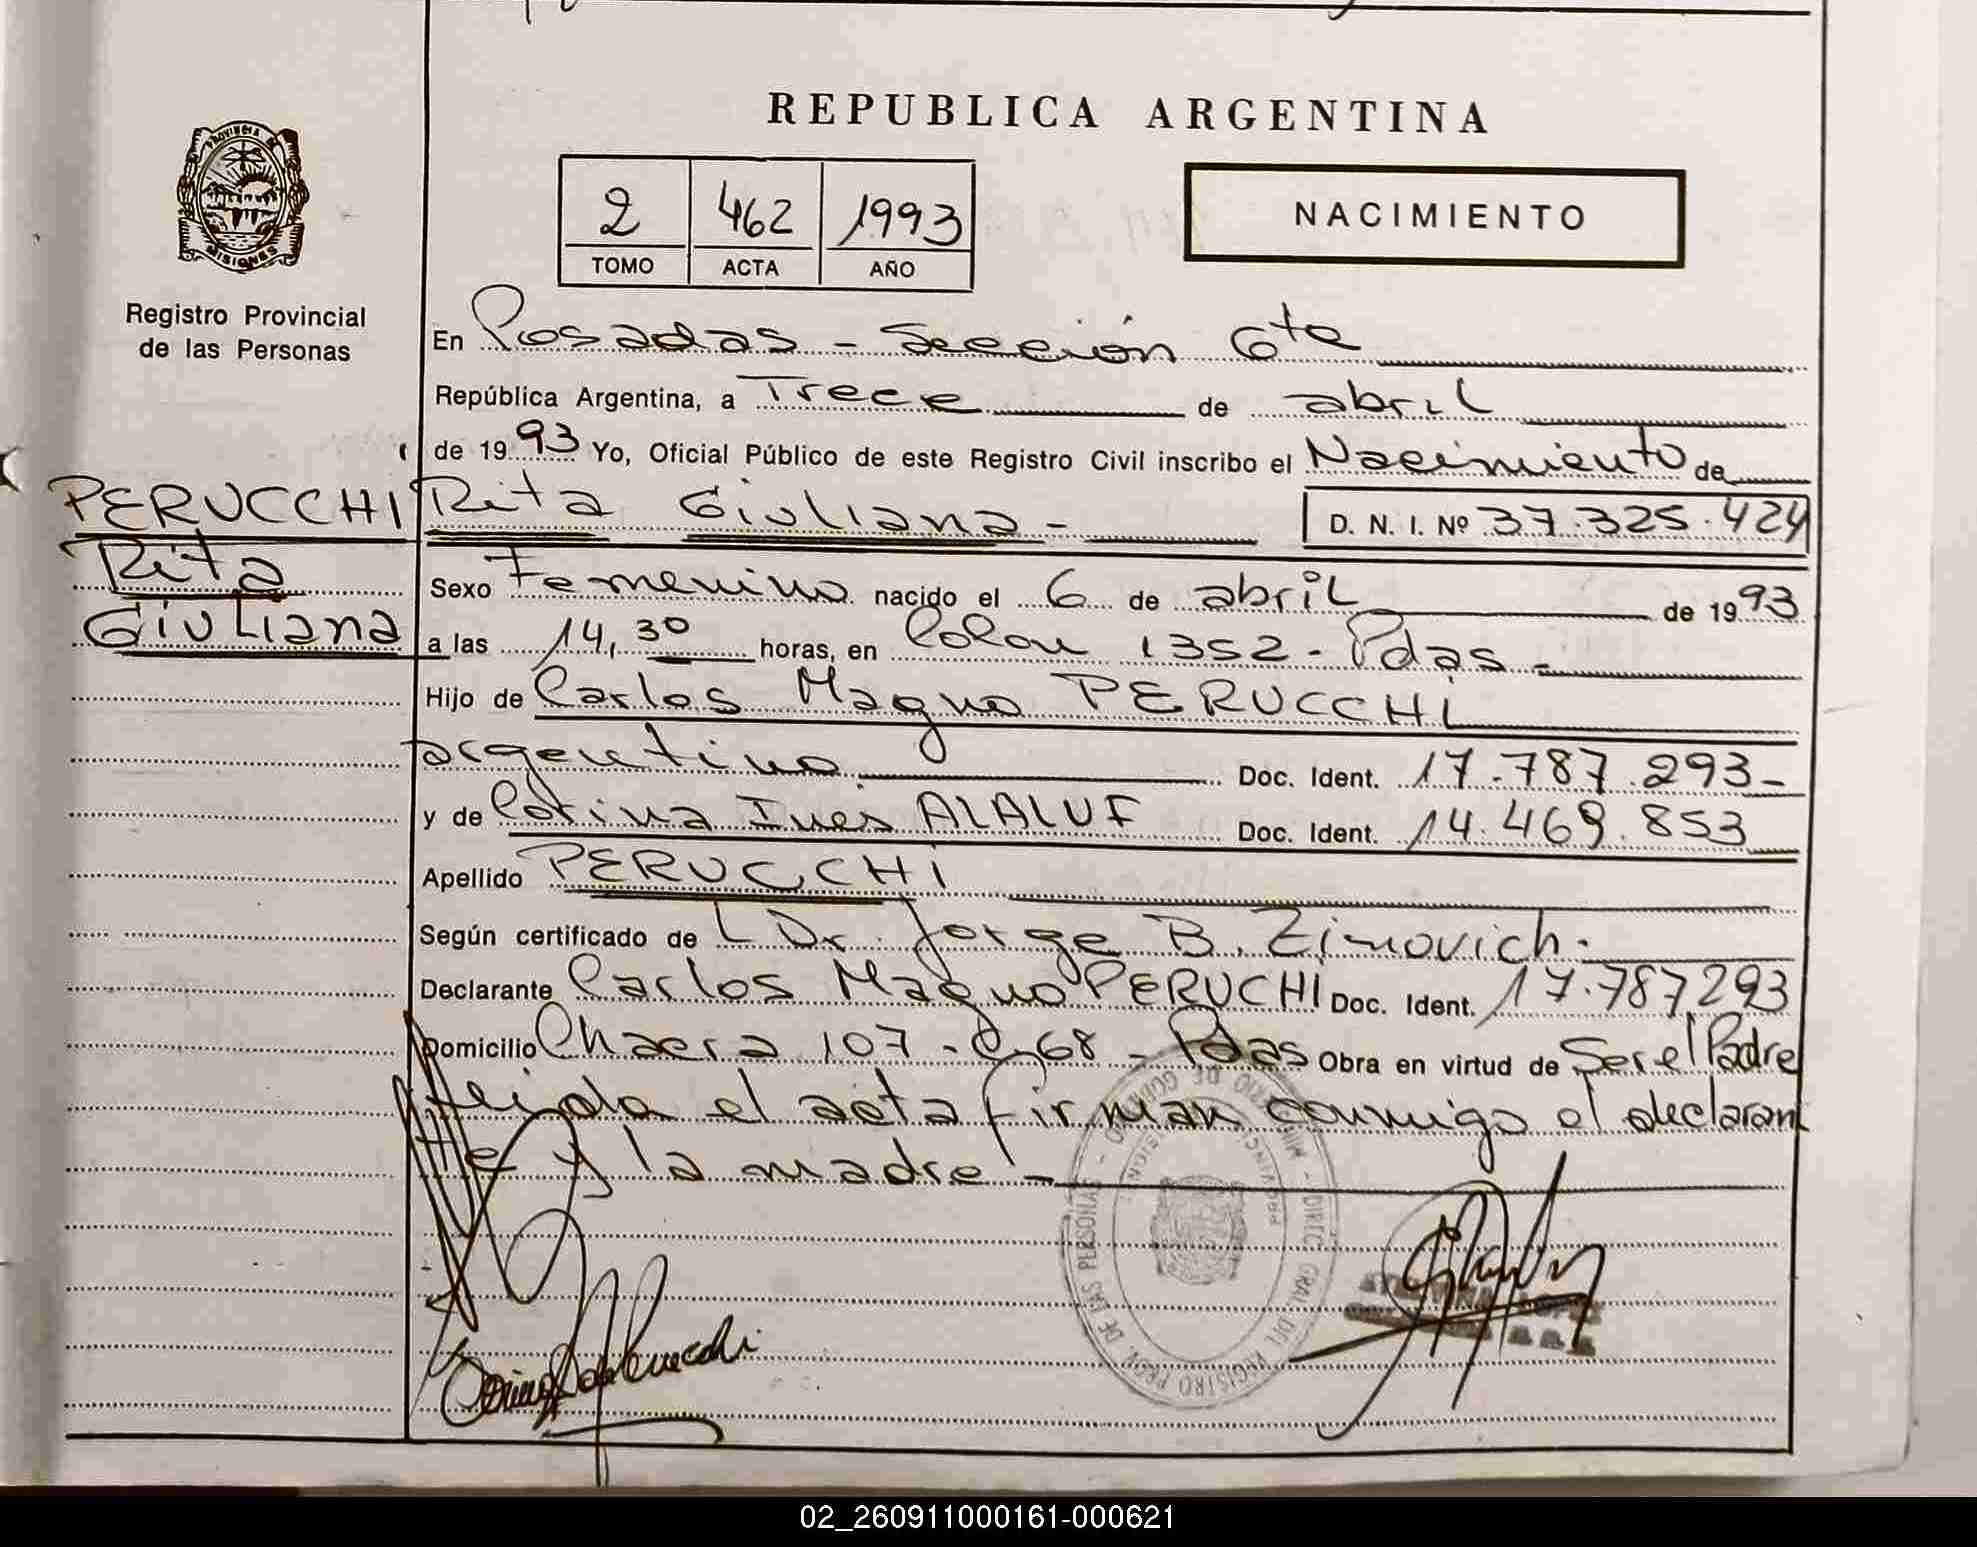 REPUBLICA ARGENTINA
PROVINCIA DE MISIONES
2 462 1993
TOMO ACTA AÑO
NACIMIENTO
Registro Provincial
de las Personas
En Posadas - Sección 6ta
República Argentina, a Trece de abril
de 1993 Yo, Oficial Público de este Registro Civil inscribo el Nacimiento de
PERUCCHI Rita Giuliana - D. N. I. Nº 37.325.424
Rita
Giuliana
Sexo Femenino nacido el 6 de abril de 1993
a las 14,30 horas, en Colon 1352 - Pdas -
Hijo de Carlos Magno PERUCCHI
argentino Doc. Ident. 17.787.293-
y de Corina Inés ALALUF Doc. Ident. 14.469.853
Apellido PERUCCHI
Según certificado de L Dr. Jorge B. Zimovich.
Declarante Carlos Magno PERUCHI Doc. Ident. 17.787293
Domicilio Chacra 107 - C. 68 - Pdas Obra en virtud de Ser el Padre
leida el acta firman conmigo el declaran
te y la madre -
02_260911000161-000621